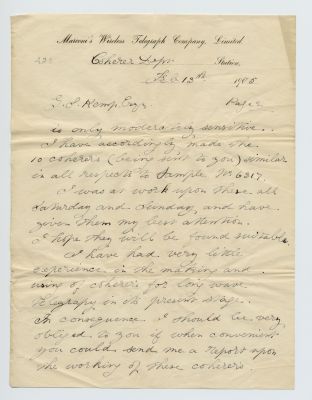 Marconi's Wireless Telegraph Company, Limited.
Coherer Dept Station,
Feb 13th 1905
G.S. Kemp Esqr.
is only moderately sensitive.
I have accordingly made the
10 coherers (being sent to you) similar
in all respects to Sample No 6317.
I was at work upon these all
Saturday and Sunday, and have
given them my best attention.
I hope they will be found suitable.
I have had very little
experience in the making and
using of coherers for long wave
telegraphy in its present stage.
In consequence I should be very
obliged to you if when convenient
you could send me a report upon
the working of these coherers.